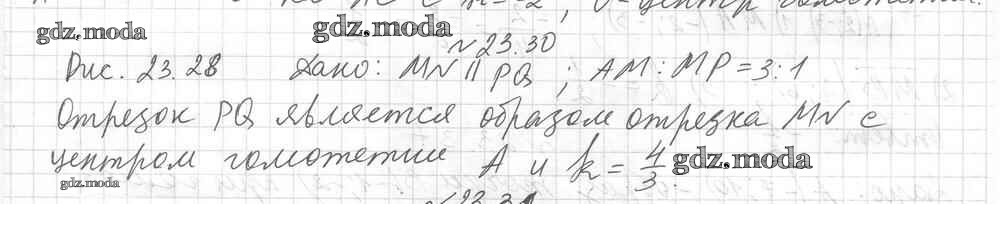 k = -2, O - центр гомотетии.
gdz.moda gdz.moda
№ 23.30
Рис. 23.28 Дано: MN || PQ ; AM : MP = 3 : 1
Отрезок PQ является образом отрезка MN с
центром гомотетии A и k = 4/3. gdz.moda
gdz.moda
№ 23.31